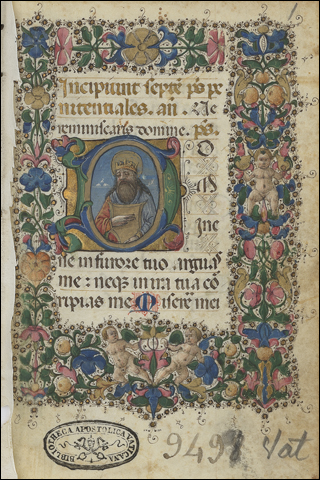 Incipiunt septē psͦ pe
nitentiales. an̄. Ne
reminiscaris domine. ps.
D
OM
INE
ne in furore tuo arguas
me: neq in ira tua cō
ripias me Miserere mei
BIBLIOTHECA APOSTOLICA VATICANA
9498 Vat